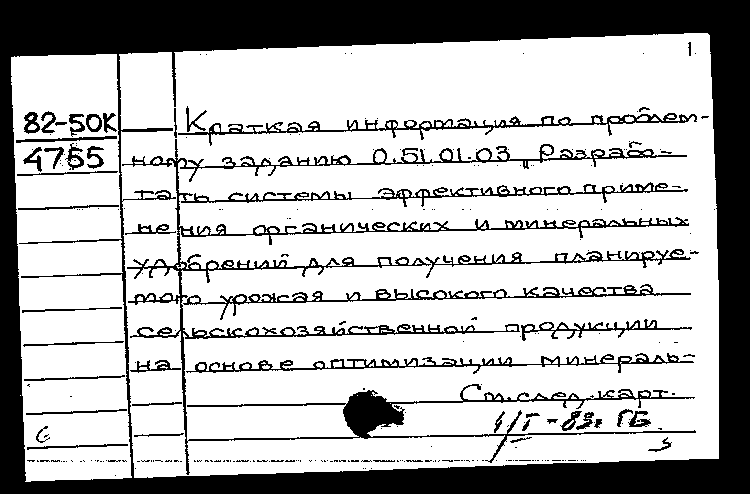 1
82-50К
4755
Краткая информация по проблем-
ному заданию 0.51.01.03 „Разрабо-
тать системы эффективного приме-
нения органических и минеральных
удобрений для получения планируе-
мого урожая и высокого качества
сельскохозяйственной продукции
на основе оптимизации минераль-
См. след. карт.
4/I-83г. ГБ.